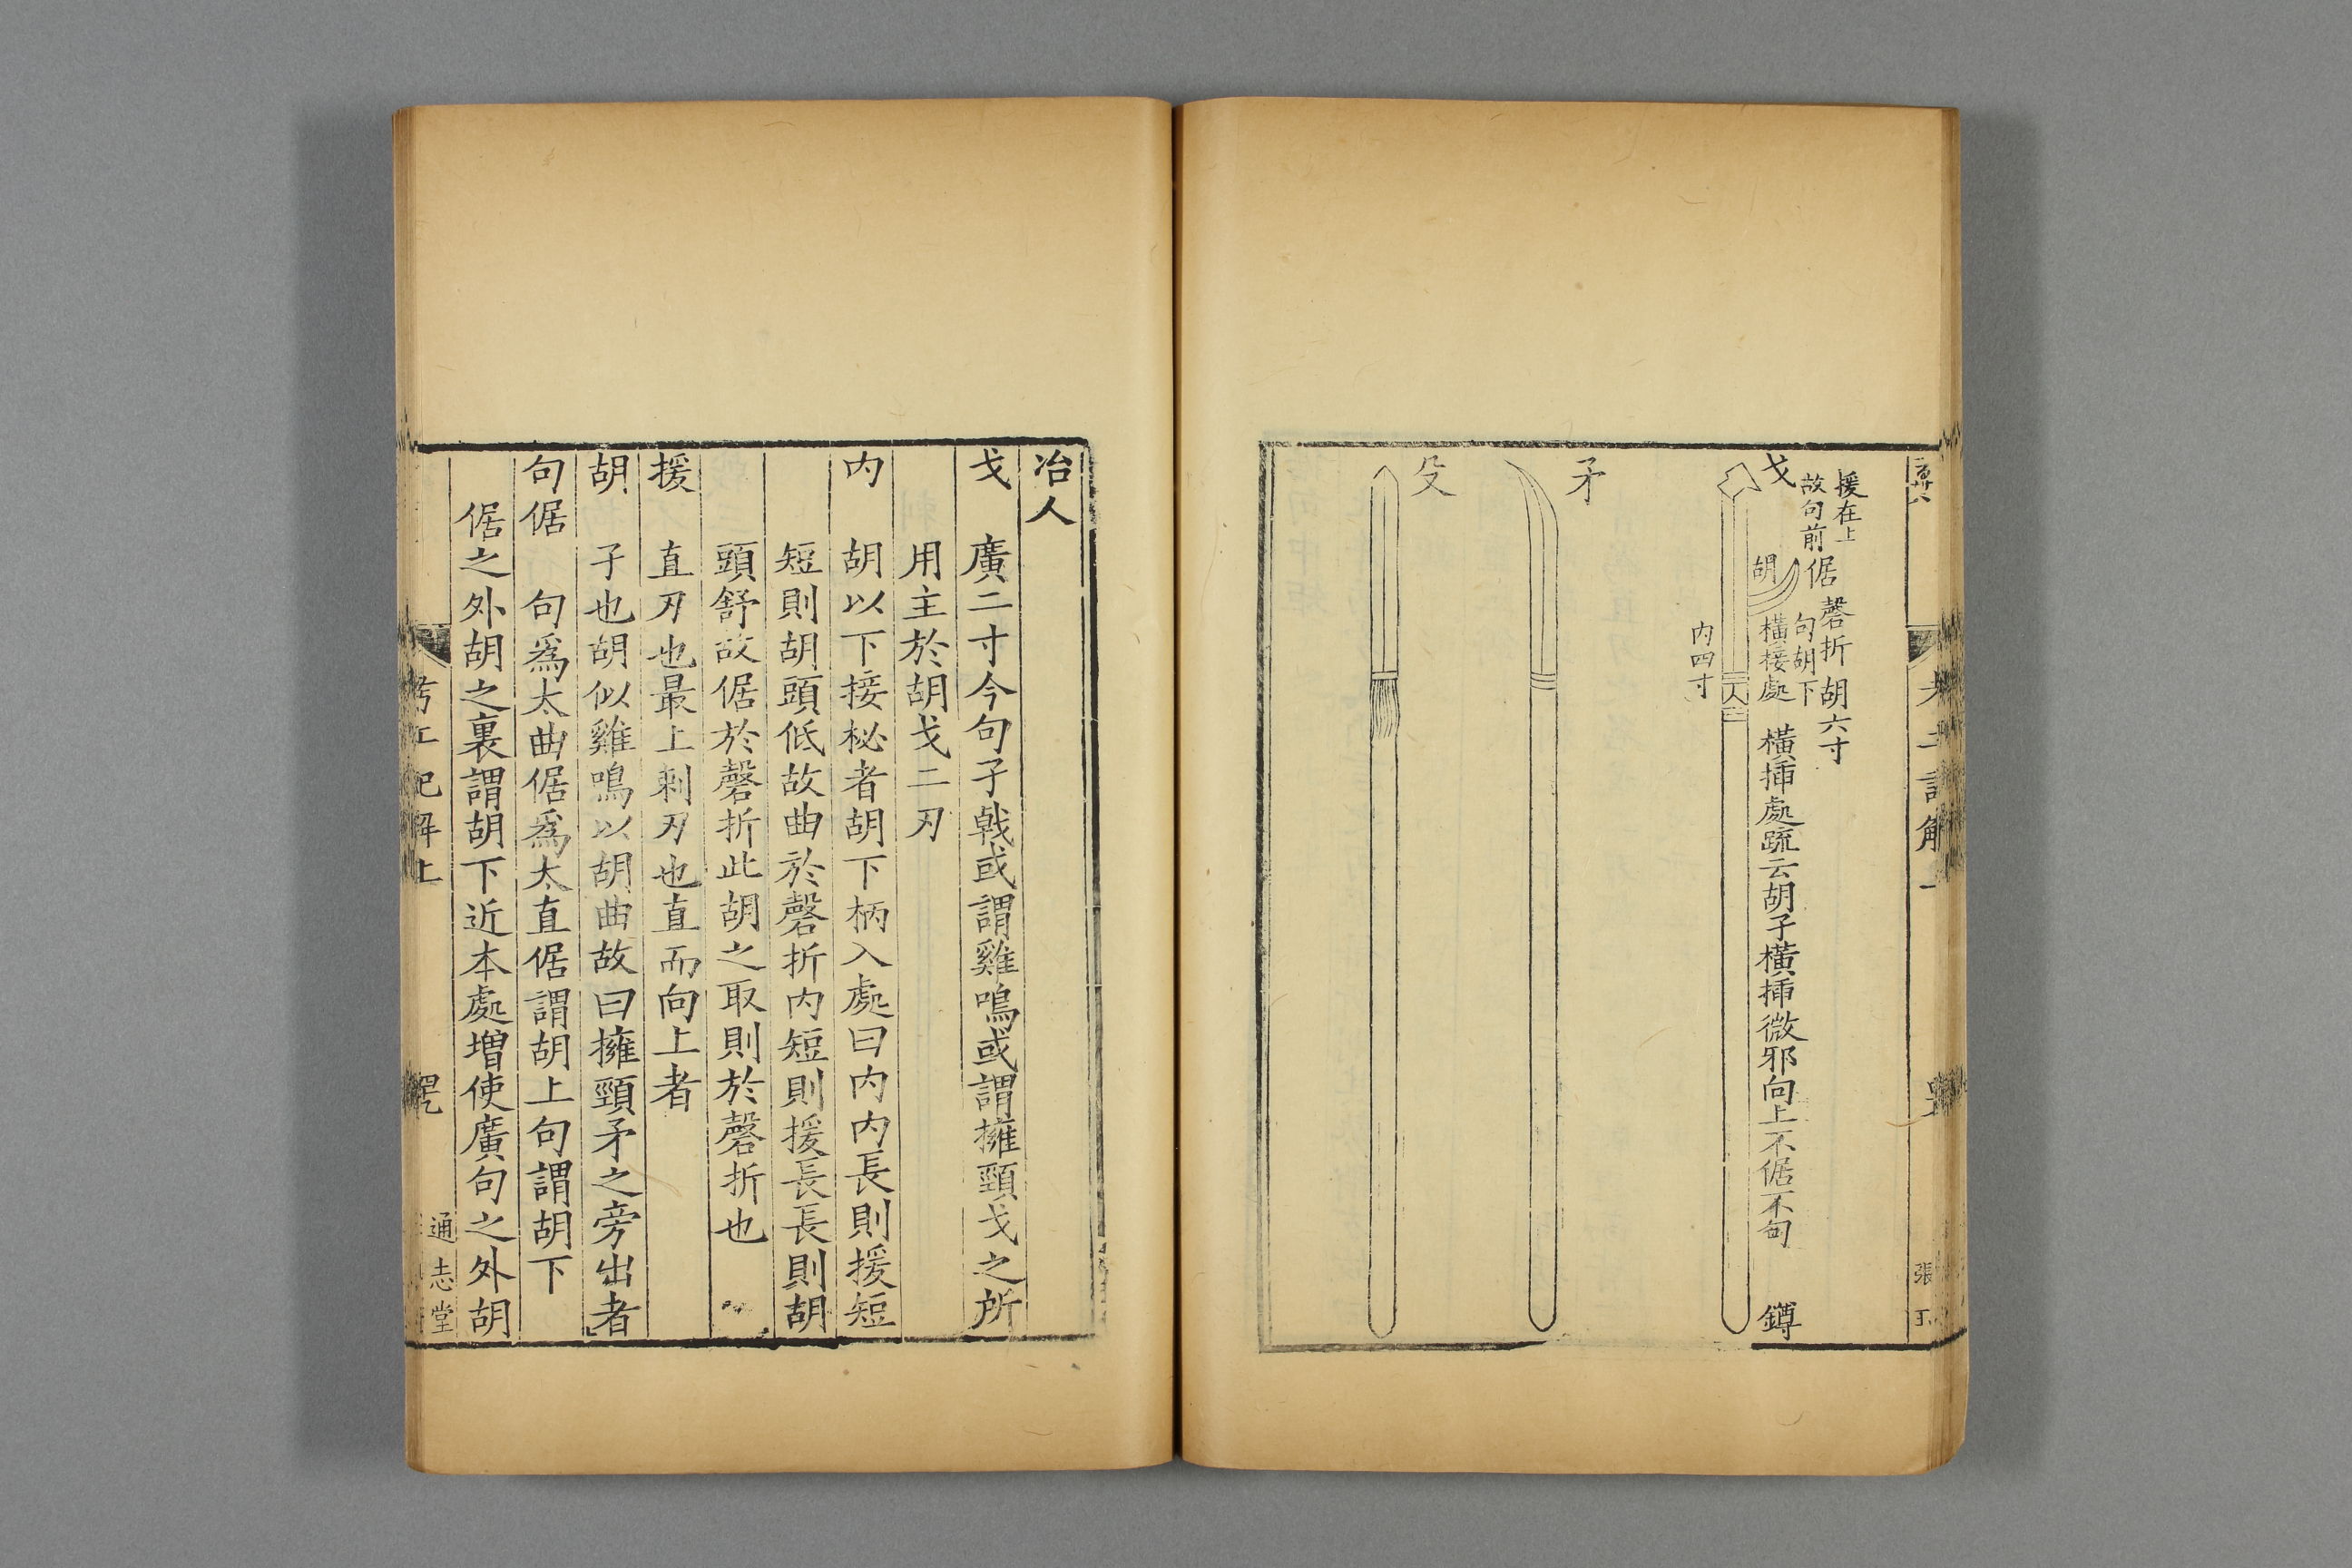 援在上
故句前
戈
倨
胡
磬折
胡六寸
句胡下
橫接處
內四寸
橫揷處疏云胡子橫揷微邪向上不倨不句
鐏
矛
殳
張
冶人
戈　廣二寸今句孑戟或謂雞鳴或謂擁頸戈之所
用主於胡戈二刃
內　胡以下接柲者胡下柄入處曰內內長則援短
短則胡頭低故曲於磬折內短則援長長則胡
頭舒故倨於磬折此胡之取則於磬折也
援　直刃也最上刺刃也直而向上者
胡　孑也胡似雞鳴以胡曲故曰擁頸矛之旁出者
句倨　句爲太曲倨爲太直倨謂胡上句謂胡下
倨之外胡之裏謂胡下近本處增使廣句之外胡
考工記解上
通志堂